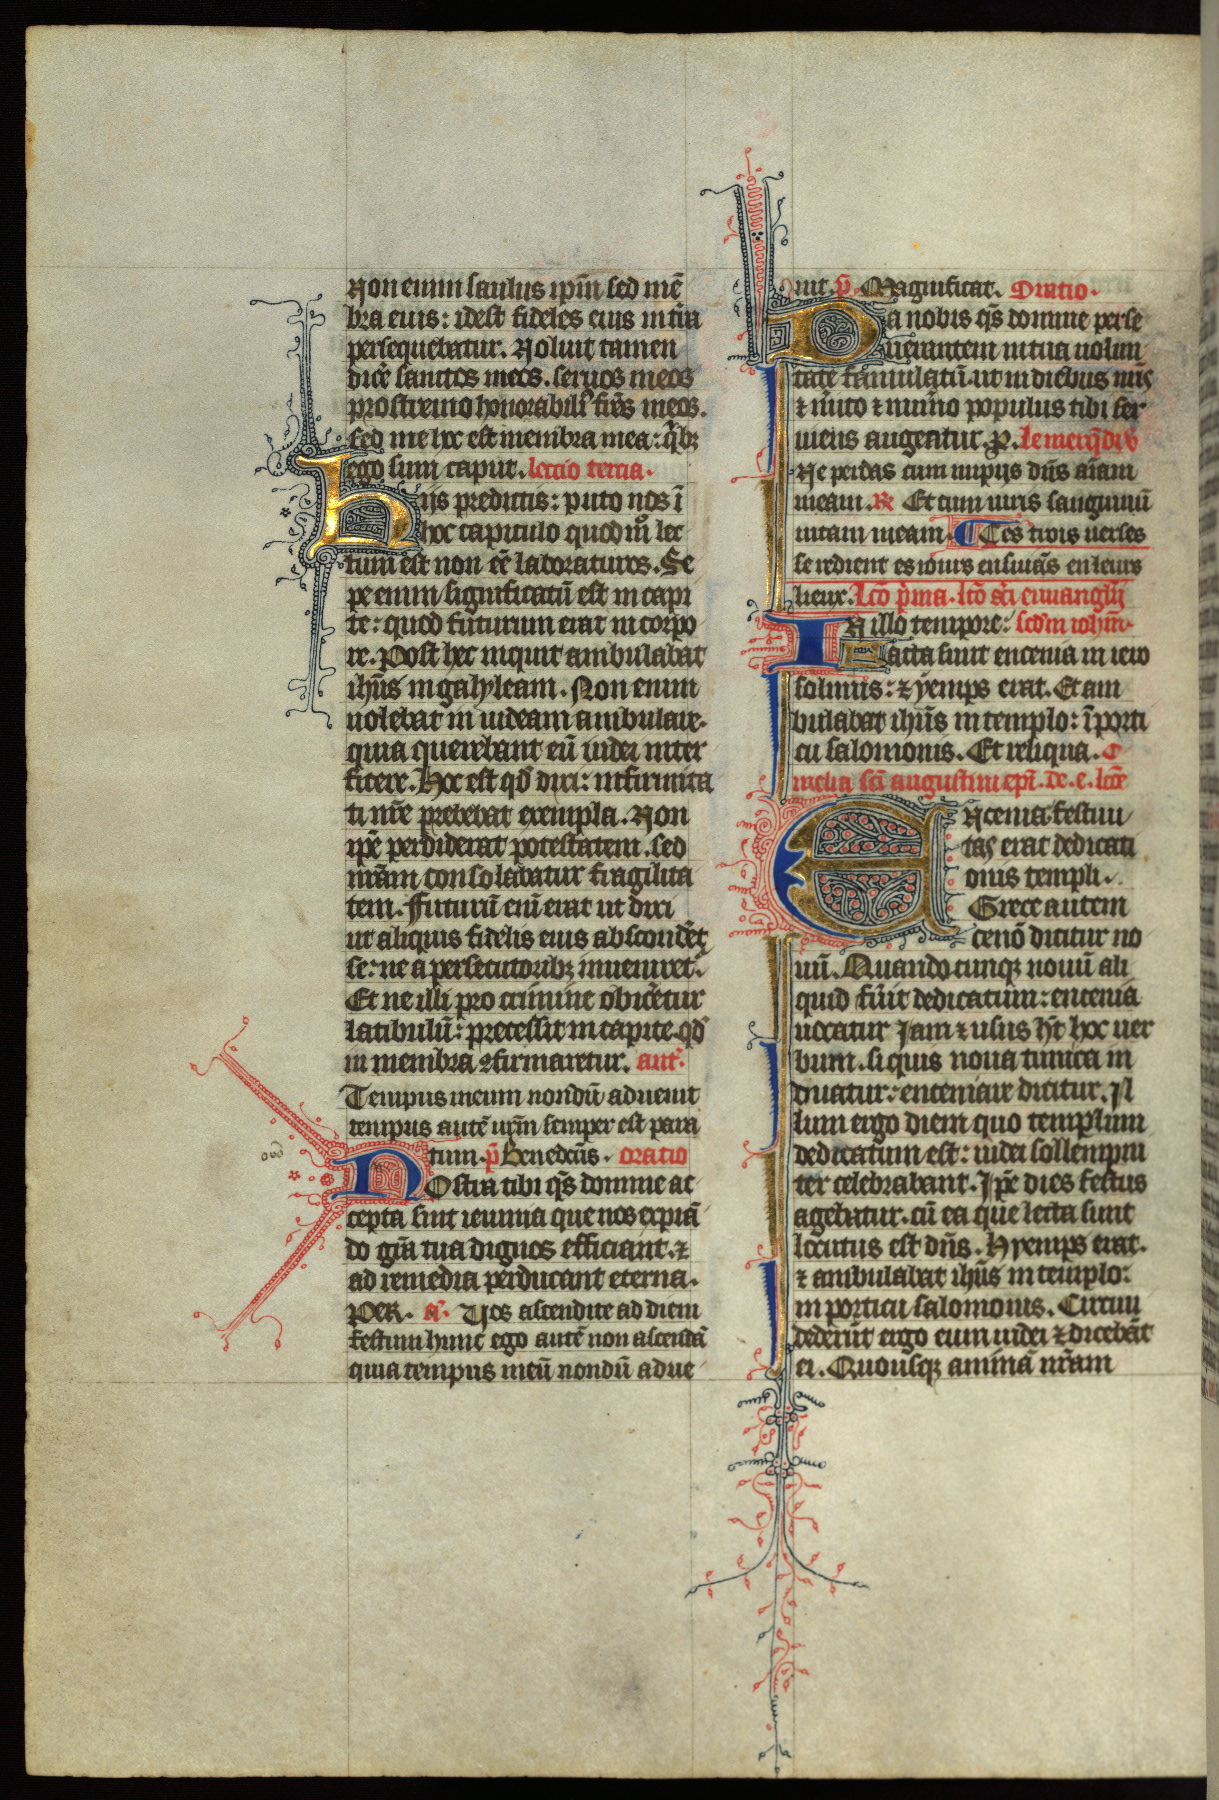 Non enim saulus ip̄m sed mē
bra eius: idest fideles eius in t̄ra
persequebatur. Noluit tamen
dicē sanctos meos. seruos meos
postremo honorabiliꝰ fr̄es meos.
sed me hoc est membra mea: qͥbꝫ
ego sum caput. lectio tercia.
Hijs predictis: puto nos ī
hoc capitulo quod m̊ lec
tum est non eē laboraturos. Se
pe enim significatū est in capi
te: quod futurum erat in corpo
re. Post hec inquit ambulabat
ihūs in galyleam. Non enim
uolebat in iudeam ambulare.
quia querebant eū iudei inter
ficere. Hoc est qd̓ dixi: infirmita
ti nr̄e prebebat exempla. Non
ip̄e perdiderat potestatem. sed
nr̄am consolabatur fragilita
tem. Futurū eni erat ut dixi
ut aliquis fidelis eius absconder̄
se: ne a persecutoribꝫ inueniret᷑.
Et ne illi pro crimine obicēetur
latibulū: precessit in capite. qd̓
in membra ꝯfirmaretur. ant᷑.
Tempus meum nondū aduenit
tempus autē ur̄m semper est para
tum. p̄ Benedcūs. oratio
Nostra tibi qs̄ domine ac
cepta sint ieiunia que nos expiā
do grā tua dignos efficiant. ⁊
ad remedia perducant eterna.
PER. a᷑. Uos ascendite ad diem
festum hunc ego autē non ascendā
quia tempus meū nondū adue
nit. p̄. Magnificat. Oratio.
Da nobis qs̄ domine perse
uerantem in tua uolun
tate famulatū. ut in diebus nr̄is
⁊ m̓ito ⁊ num̓o populus tibi ser
uiens augeatur. ꝑ. le merq̄di v̓
Ne perdas cum impijs dn̄s aīam
meam. ℟ Et cum uiris sanguinū
uitam meam. Ces trois uerses
se redient es iours ensiuāns en leurs
lieux. Lcō p̄ma. lcō sc̄i euuanglij
In illo tempore: scdm iohm̄.
Facta sunt encenia in iero
solimis: ⁊ yemps erat. Et am
bulabat ihūs in templo: ī porti
cu salomonis. Et reliqua. O
melia sc̄i augustini epī. de. e. lcōe
Encenia festiui
tas erat dedicati
onis templi.
Grece autem
cenō dicitur no
uū. Quandocunqꝫ nouū ali
quid fu̓it dedicatum: encenia
uocatur. Jam ⁊ usus hꝫ hoc uer
bum. si quis noua tunica in
duatur: enceniare dicitur. Il
lum ergo diem quo templum
dedicatum est: iudei sollempni
ter celebrabant. Ip̄e dies festus
agebatur. cū ea que lecta sunt
locutus est dn̄s. Hyemps erat.
⁊ ambulabat ihūs in templo:
in porticu salomonis. Circun
dederūt ergo eum iudei ⁊ dicebāt
ei. Quousqꝫ animā nr̄am